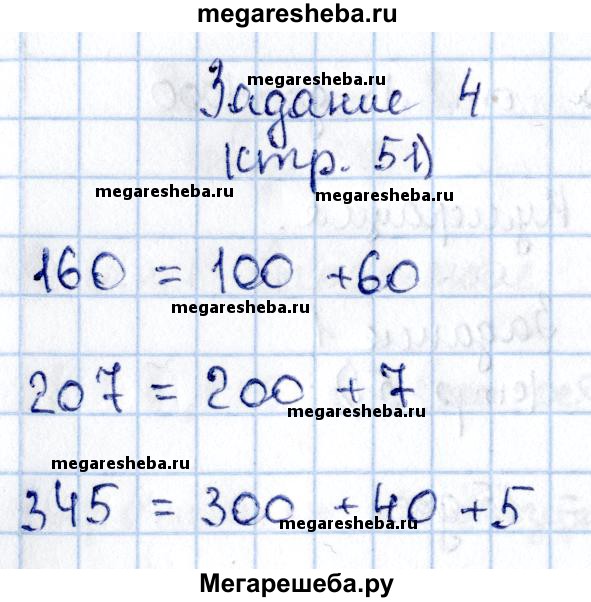 megaresheba.ru
megaresheba.ru
Задание 4
(стр. 51)
megaresheba.ru
megaresheba.ru
160 = 100 + 60
megaresheba.ru
207 = 200 + 7
megaresheba.ru
megaresheba.ru
345 = 300 + 40 + 5
megaresheba.ru
Мегарешеба.ру